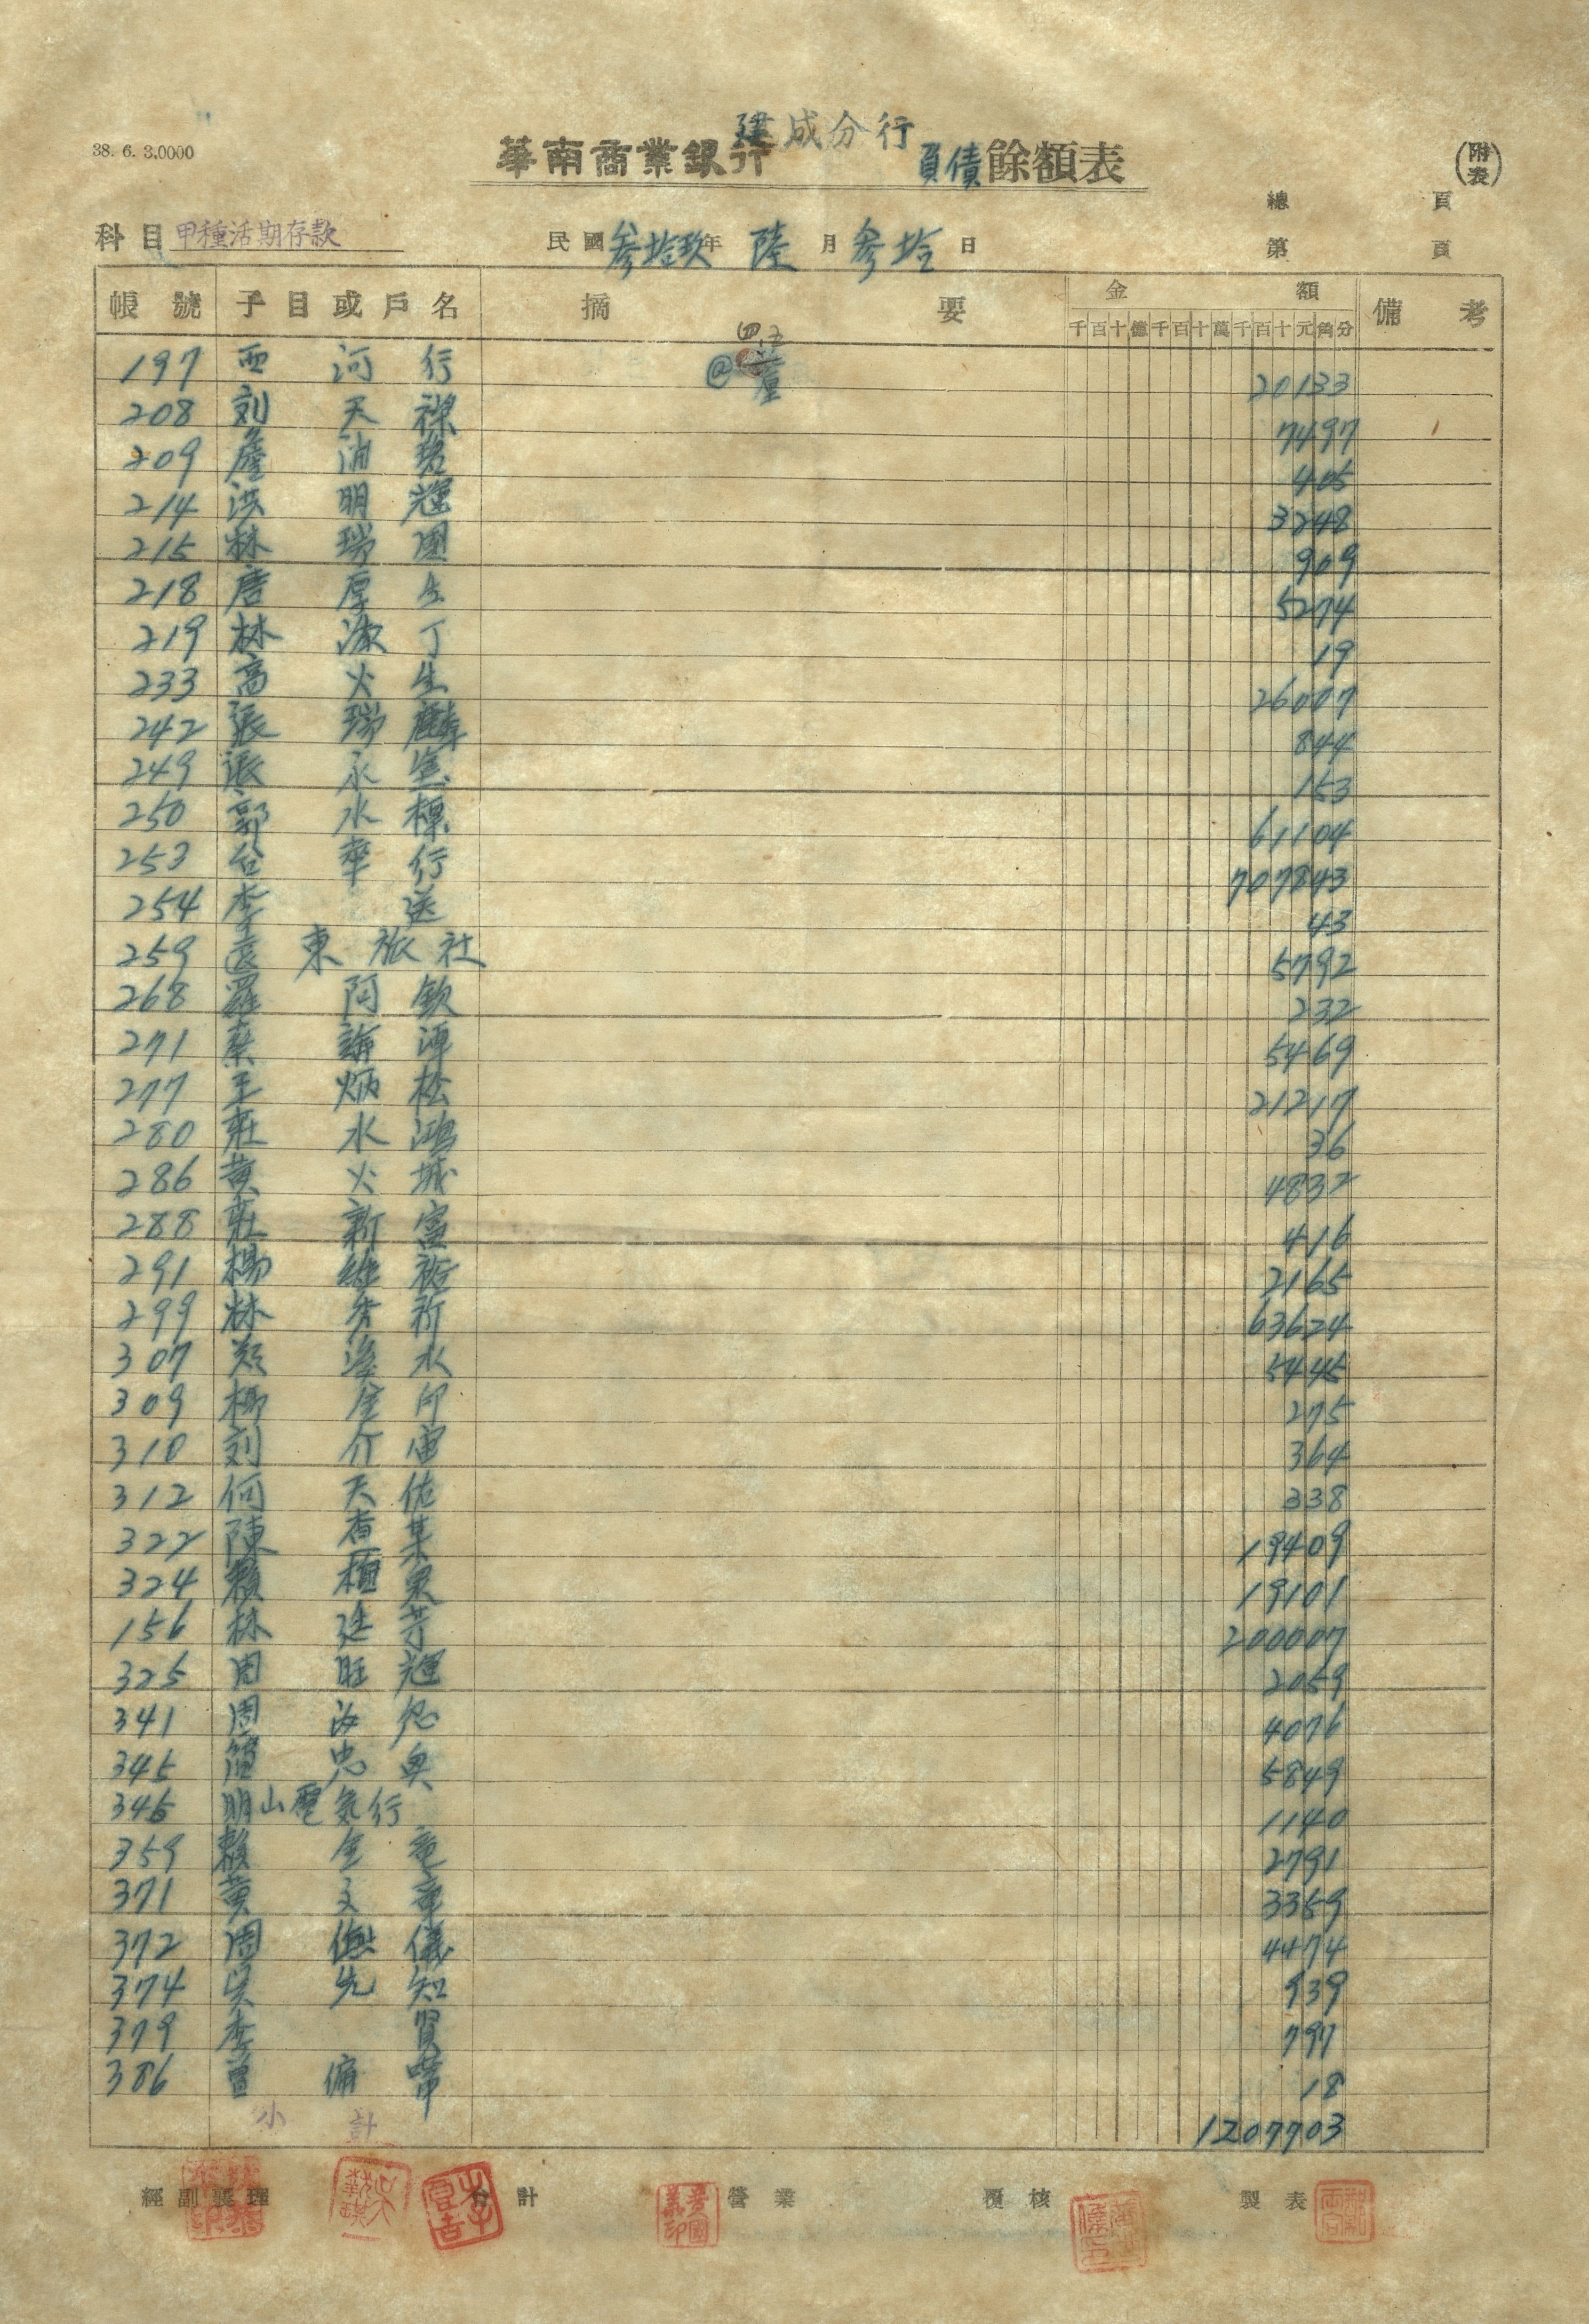 38. 6. 3,0000
華南商業銀行 建成分行 負債餘額表 (附表)
總 頁
科目 甲種活期存款 民國參拾玖年 陸月參拾日 第 頁
帳號 子目或戶名 摘要 金額 備考
千百十億千百十萬千百十元角分
197 西河行 @ 四.五 厘 20133
208 刘天祿 7497
209 詹 405
214 洪明輝 3248
215 林瑞圖 909
218 唐厚生 5274
219 林添丁 19
233 高火生 26007
242 張瑞麟 844
249 張永 153
250 郭水標 61104
253 台華行 707843
254 李送 43
259 遠東旅社 5792
268 羅阿欽 232
271 蔡 5469
277 王炳松 21217
280 莊水鴻 36
286 黃火城 4832
288 莊新富 416
291 楊 2165
299 林 63624
307 鄭 水 5445
309 楊金印 275
310 刘介宙 364
312 何天佑 338
322 陳 19409
324 賴 19101
156 林廷芳 200007
325 周旺輝 2059
341 周 4076
345 簡忠 5849
346 明山電氣行 1140
359 賴金 2791
371 黃文章 3359
372 周 儀 4474
374 吳先知 939
379 李賢 797
386 曾 18
小計 1207703
經副襄理 會計 營業 覆核 製表